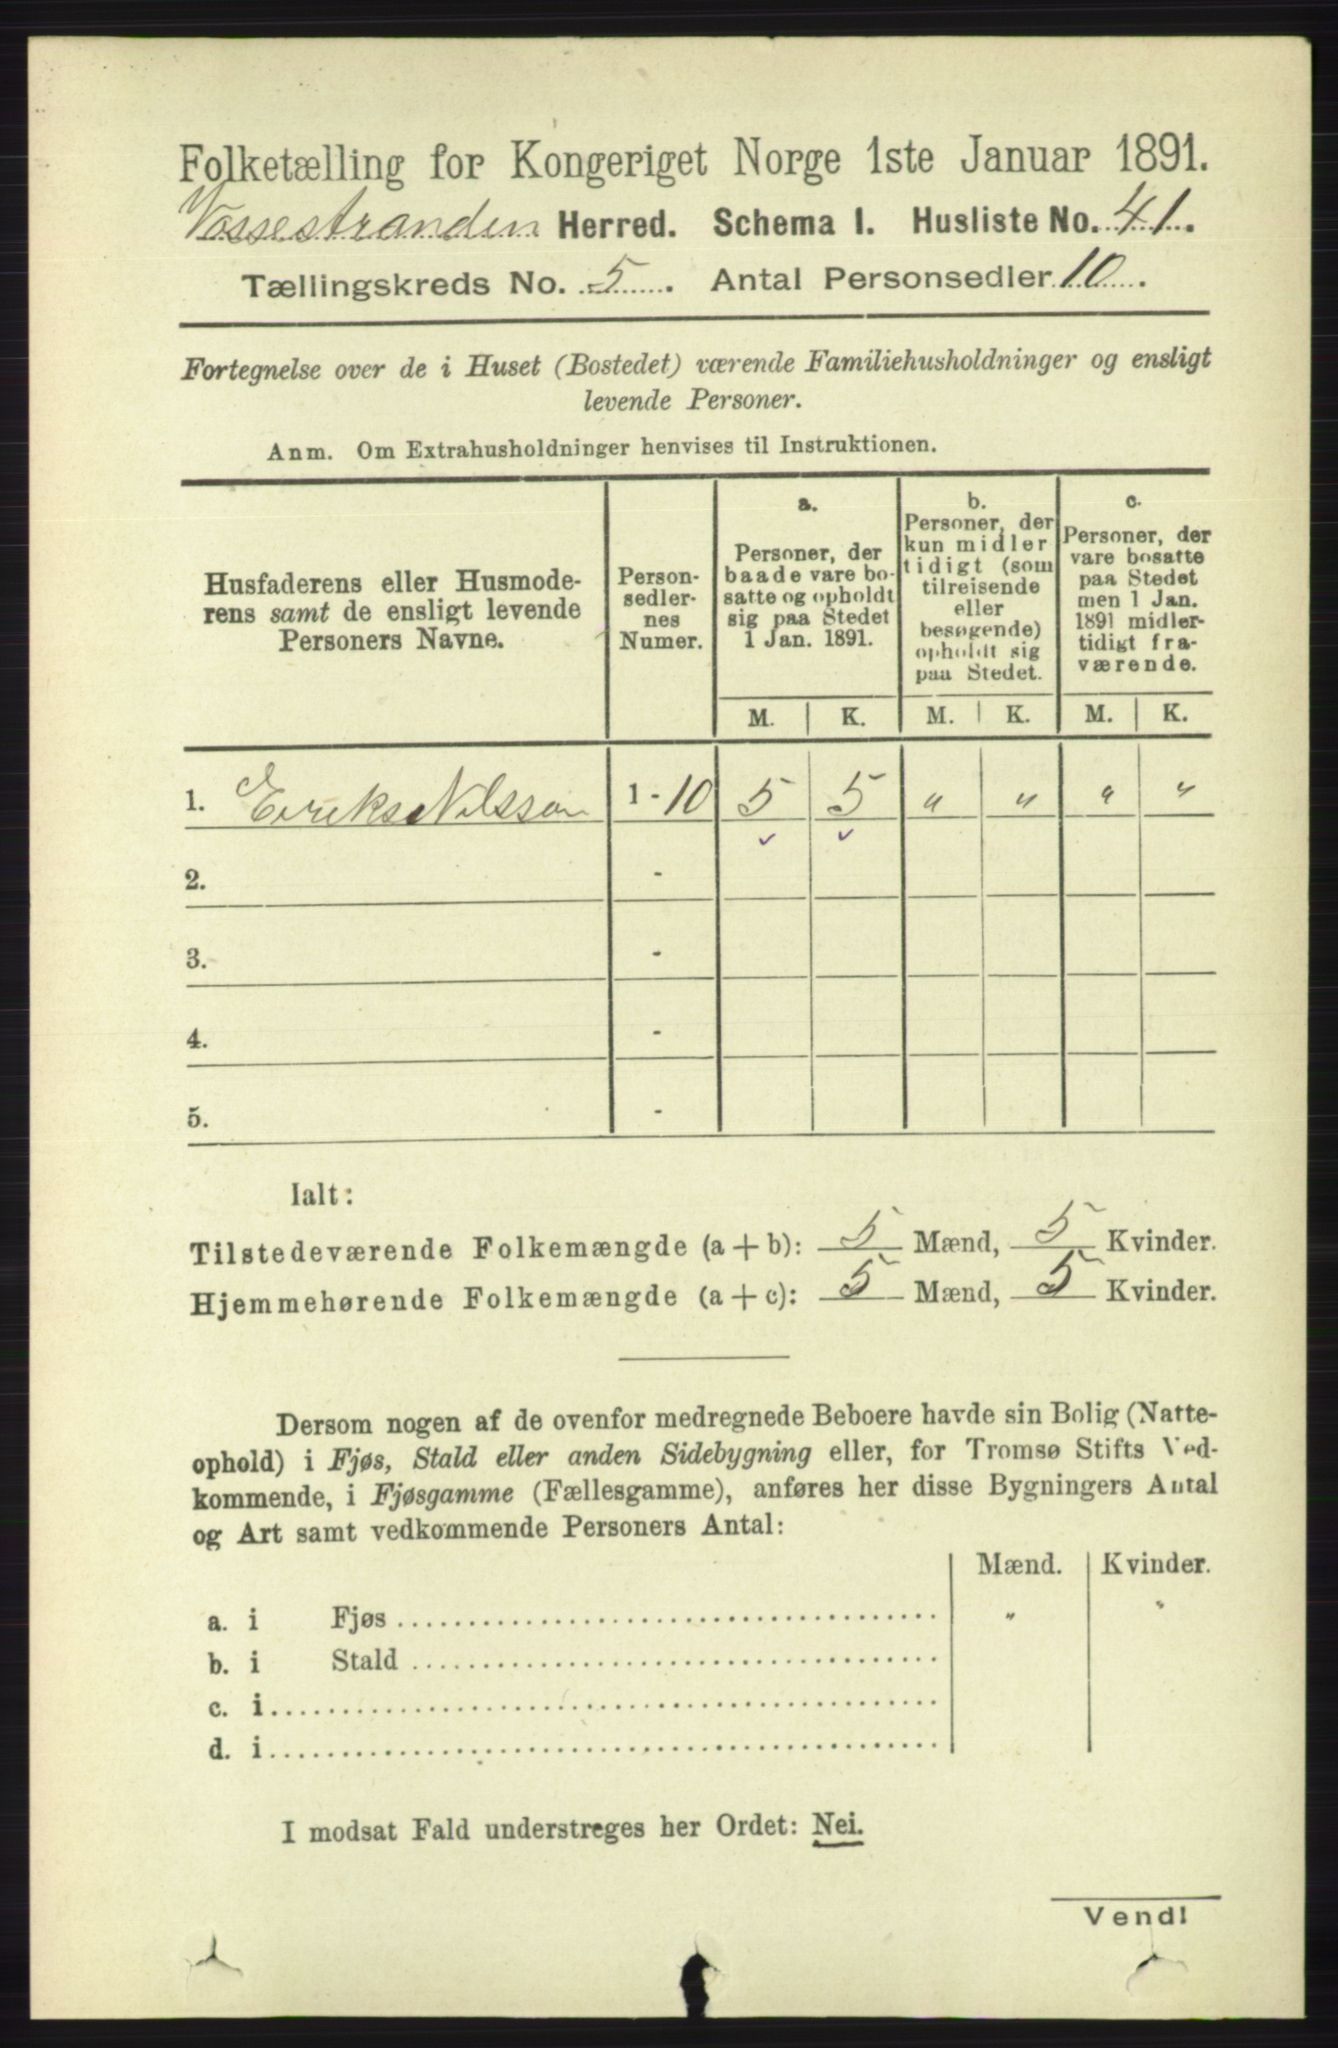 Folketælling for Kongeriget Norge 1ste Januar 1891.
Vossestranden Herred. Schema I. Husliste No. 41.
Tællingskreds No. 5. Antal Personsedler 10.
Fortegnelse over de i Huset (Bostedet) værende Familiehusholdninger og ensligt
levende Personer.
Anm. Om Extrahusholdninger henvises til Instruktionen.
Husfaderens eller Husmode-
rens samt de ensligt levende
Personers Navne.
Person-
sedler-
nes
Numer.
a.
Personer, der
baade vare bo-
satte og opholdt
sig paa Stedet
1 Jan. 1891.
b.
Personer, der
kun midler
tidigt (som
tilreisende
eller
besøgende)
opholdt sig
paa Stedet.
c.
Personer, der
vare bosatte
paa Stedet
men 1 Jan.
1891 midler-
tidigt fra-
værende.
M. K. M. K. M. K.
1. Nilsson 1 - 10 5 5 " " " "
2. -
3. -
4. -
5. -
Ialt:
Tilstedeværende Folkemængde (a + b): 5 Mænd, 5 Kvinder.
Hjemmehørende Folkemængde (a + c): 5 Mænd, 5 Kvinder.
Dersom nogen af de ovenfor medregnede Beboere havde sin Bolig (Natte-
ophold) i Fjøs, Stald eller anden Sidebygning eller, for Tromsø Stifts Ved-
kommende, i Fjøsgamme (Fællesgamme), anføres her disse Bygningers Antal
og Art samt vedkommende Personers Antal:
Mænd. Kvinder.
a. i Fjøs " "
b. i Stald
c. i
d. i
I modsat Fald understreges her Ordet: Nei.
Vend!